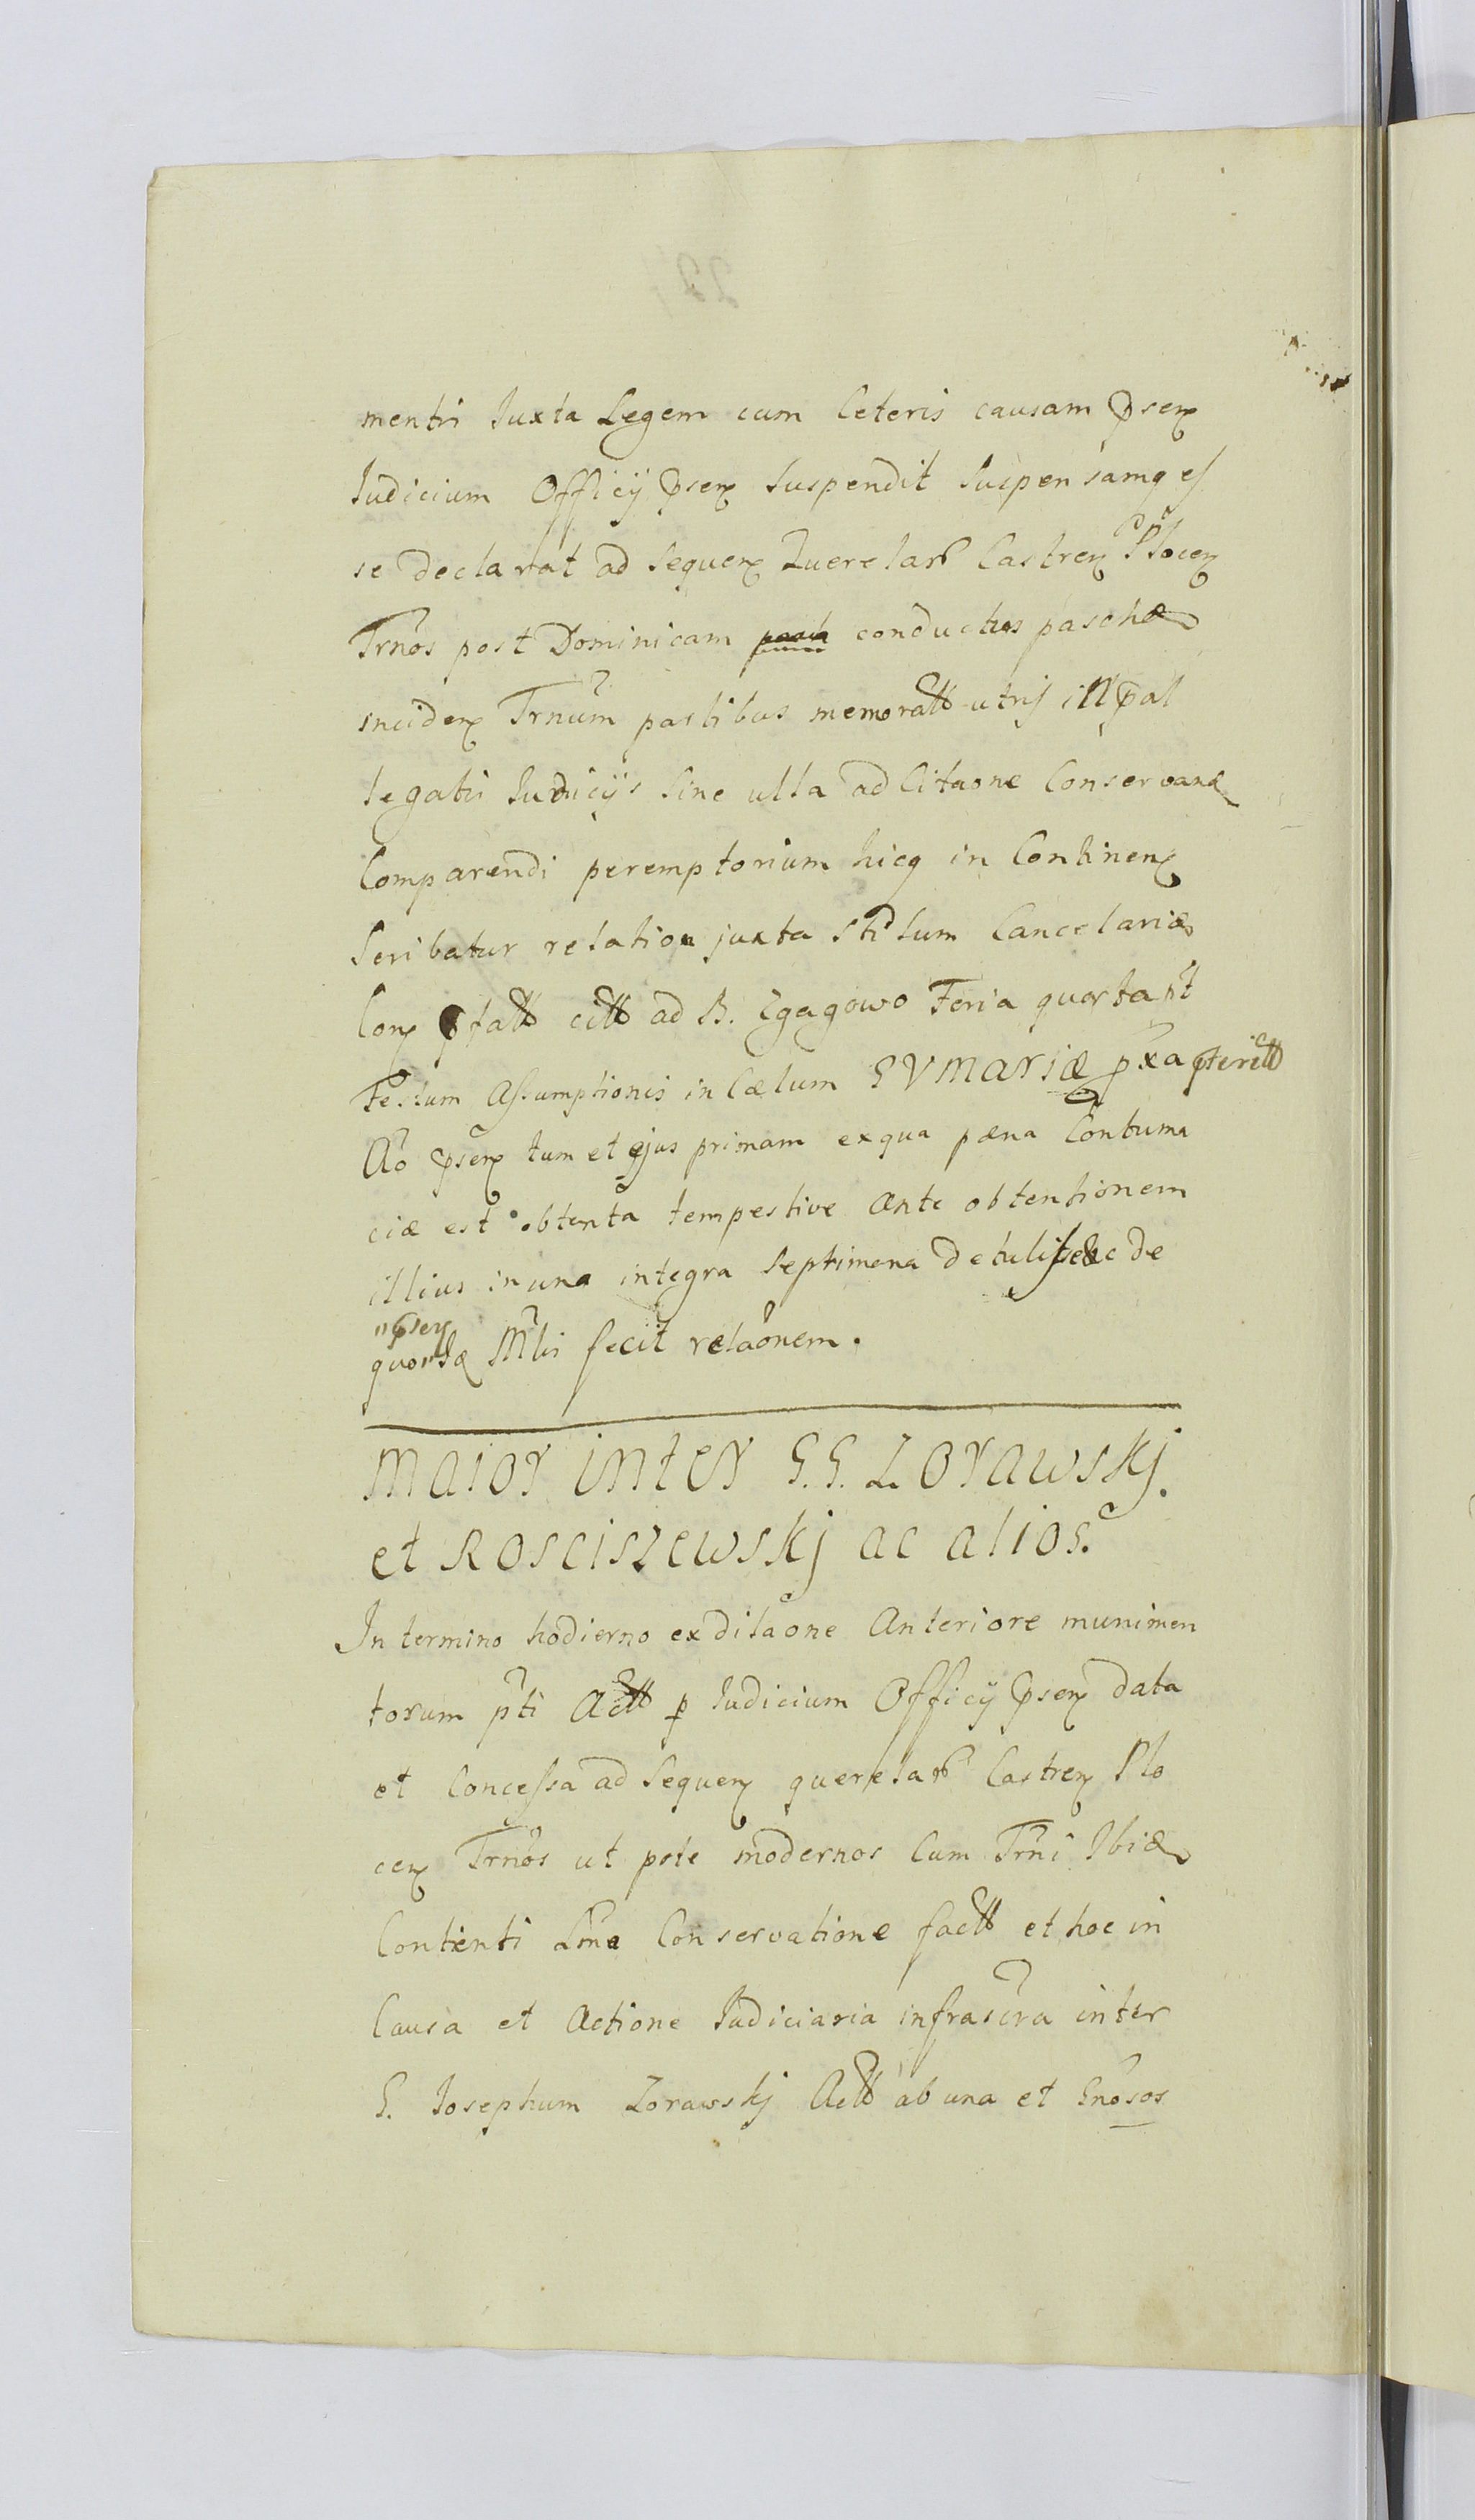 mentri Iuxta Legem cum Ceteris causam p̄sen̄
Iudicium Officij p̄sen̄ Suspendit Suspensamq es
se declarat ad Sequen̄ Querelar̄ Castren̄ Plocen̄
Trn̄os post Dominicam conductus paschæ
inciden̄ Trn̄um partibus memoratt utrisq in pal
legatis Iudicijs Sine ulla adCitaōne Conservanæ
Comparendi peremptorium hicq in Continen̄
Scribatur relation juxta Stilum Cancelariæ
Con̄ ptatt citt ad B. Zgagowo Feria quarta pt
Festum Assumptionis in Cælum S V MARIÆ pxa pteritt
Aō p̄sen̄ tum et ejus primam exqua pæna Contuma
ciæ est obtenta tempestive Ante obtentionem
illius in una integra Septimena detulisse ac de
p̄sen̄
quorsæ Mlis fecit relaōnem.
MAIOR INTER G.G. ZORAWSKJ.
et ROSCISZEWSKJ AC ALIOS.
In termino hodierno exdilaōne Anteriore munimen
torum pti Actt p Iudicium Officij p̄sen̄ data
et Concessa ad Sequen̄ querelar̄ Castren̄ Plo
cen̄ Trn̄os ut pote modernos Cum Trn̄i Ibiæ
Contenti Lm̄a Conservatione factt et hoc in
Causa et Actione Iudiciaria infrascr̄a inter
G. Iosephum Zorawskj Actt ab una et Gn̄osos